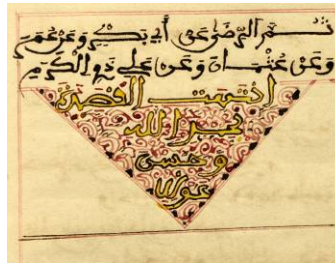 ثم الرضى عن أبي بكر وعن عمر
وعن عثمان وعن علي ذي الكرم
انتهت القصيدة
بحمد الله
وحسن
عونه